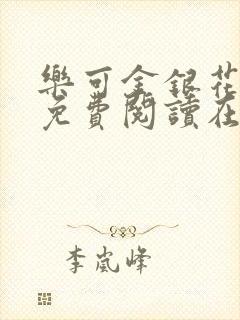 樂可金銀花
免費閱讀在
李嵐峰